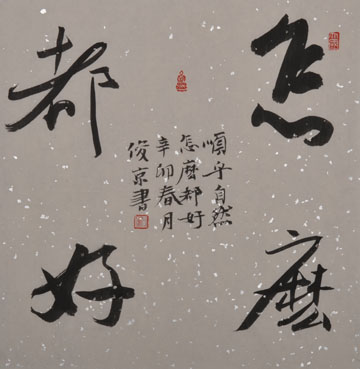 怎麽
都好
順乎自然
怎麽都好
辛卯春月
俊京書